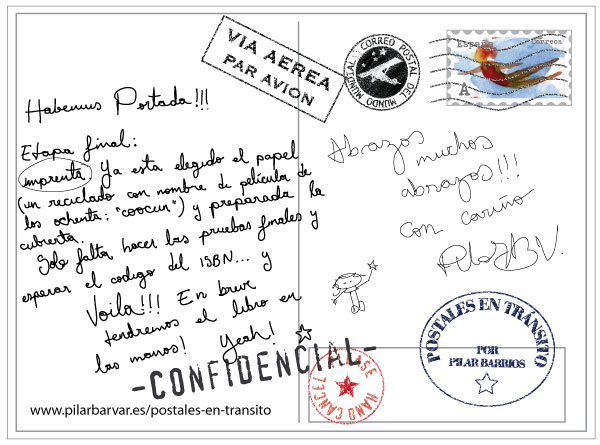 VIA AEREA
PAR AVION
CORREO POSTAL DEL MUNDO MUNDIAL
España
Correos
A
Habemus Portada!!!
Etapa final:
imprenta. Ya esta elegido el papel
(un reciclado con nombre de película de
los ochenta: "COOCUN") y preparada la
cubierta.
Solo falta hacer las pruebas finales y
esperar el codigo del ISBN... y
Voila!!! En breve
tendremos el libro en
las manos! Yeah!
Abrazos
muchos
abrazos!!!
con cariño
PilarBV.
-CONFIDENCIAL-
PLEASE HAND CANCEL
POSTALES EN TRÁNSITO
POR
PILAR BARRIOS
www.pilarbarvar.es/postales-en-transito